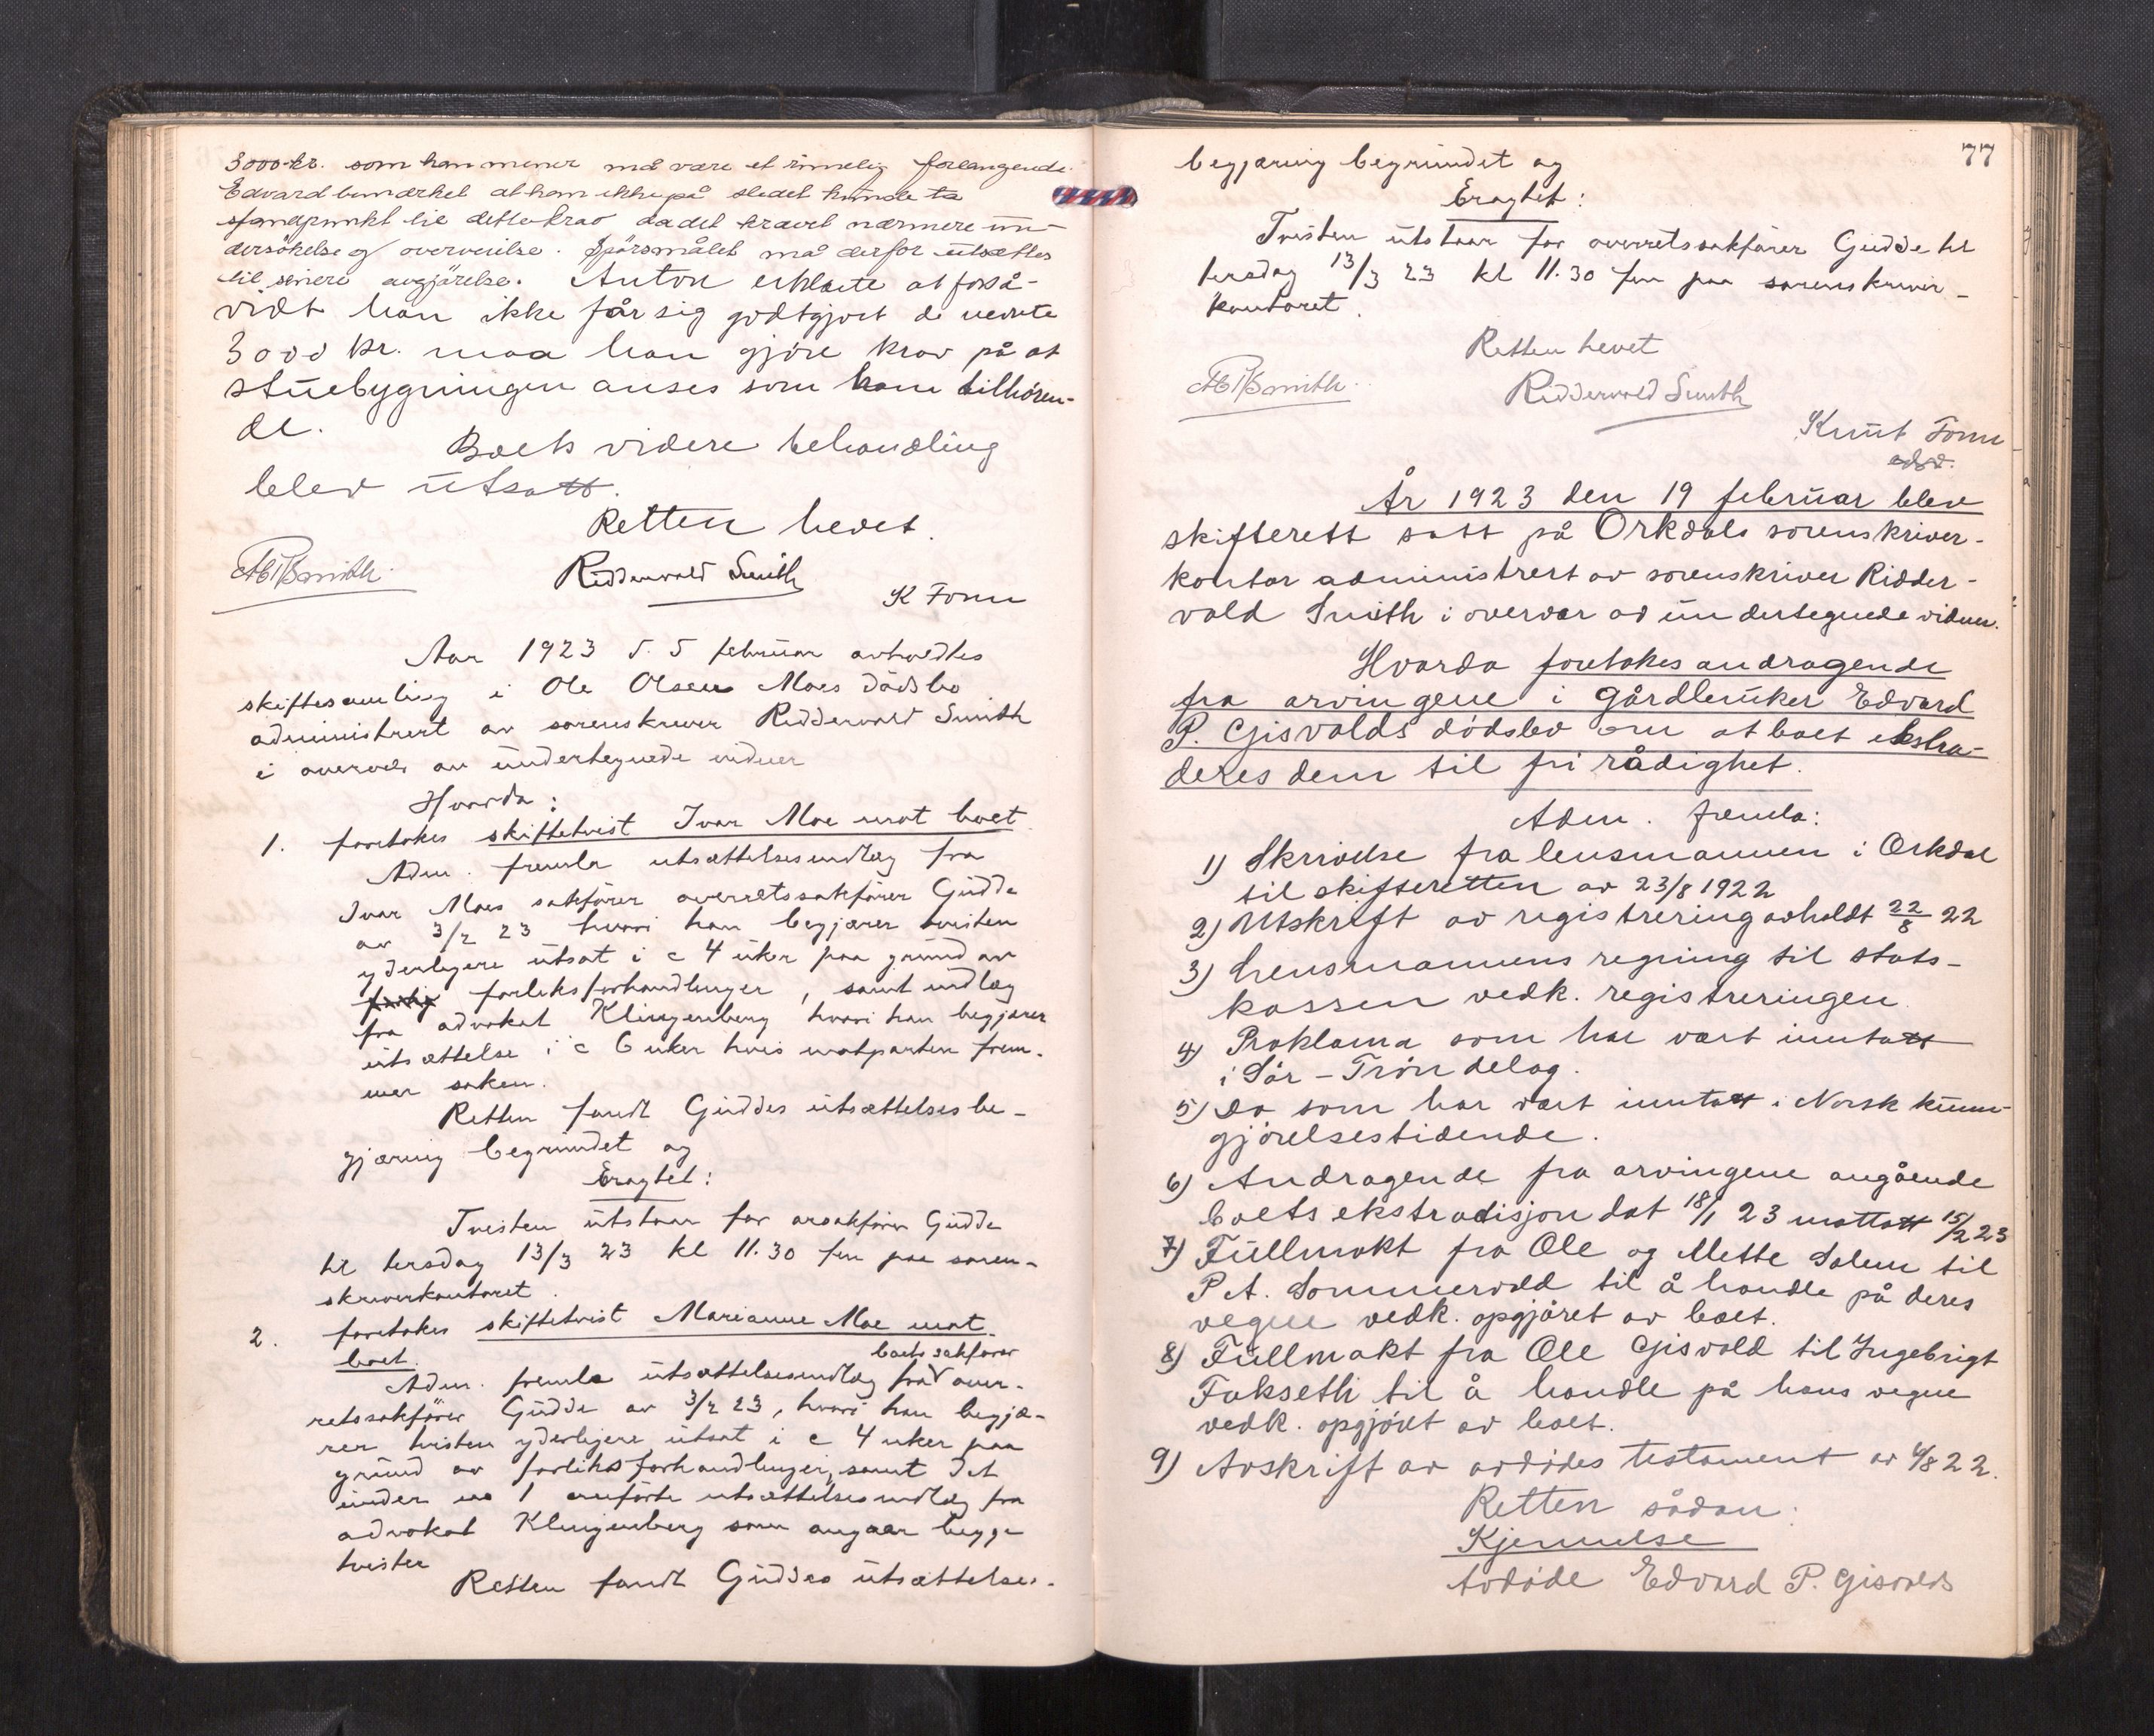 3000-kr. som han mener må være et rimelig forlangende.
Edvard bemærket at han ikke på stedet kunde ta
standpunkt til dette krav da det krævet nærmere un-
dersökelse og overveielse. Spörsmålet må derfor utsættes
til senere avgjörelse. Anton erklærte at forså-
vidt han ikke får sig godtgjort de nevnte
3000 kr. maa han gjöre krav på at
stuebygningen anses som ham tilhören-
de.
Boets videre behandling
blev utsatt.
Retten hevet.
Ridderwold Smith
K Fonn
Aar 1923 d. 5 februar avholdtes
skiftesamling i Ole Olsen Moes dödsbo
administrert av sorenskriver Ridderwold Smith
i overvær av undertegnede vidner
Hvorda:
1. foretokes skiftetvist Ivar Moe mot boet.
Adm. fremla utsættelsesindlæg fra
Ivar Moes sakförer overretssakförer Gudde
av 3/2 23 hvori han begjærer tvisten
yderligere utsat i c 4 uker paa grund av
forliksforhandlinger, samt indlæg
fra advokat Klingenberg hvori han begjærer
utsættelse i c 6 uker hvis motparten frem-
mer saken.
Retten fandt Guddes utsættelsesbe-
gjæring begrundet og
Eragtet:
Tvisten utstaar for orsakförer Gudde
til tirsdag 13/3 23 kl 11.30 fm paa soren-
skriverkontoret.
2. foretokes skiftetvist Marianne Moe mot
boet.
boets sakförer
Adm. fremla utsættelsesindlæg fra over-
retssakförer Gudde av 3/2 23, hvori han begjæ-
rer tvisten yderligere utsat i c 4 uker paa
grund av forliksforhandlinger, samt det
under no 1 anförte utsættelsesindlæg fra
advokat Klingenberg som angaar begge
tvister
Retten fandt Guddes utsættelses-
77
begjæring begrundet og
Eragtet:
Tvisten utstaar for overretssakförer Gudde til
tirsdag 13/3 23 kl 11.30 fm paa sorenskriver-
kontoret.
Retten hevet
Ridderwold Smith
Knut Fonn
År 1923 den 19 februar blev
skifterett satt på Orkdals sorenskriver-
kontor administrert av sorenskriver Ridder-
vold Smith i overvær av undertegnede vidner.
Hvorda foretokes andragende
fra arvingene i gårdbruker Edvard
P. Gisvolds dödsbo om at boet ekstra-
deres dem til fri rådighet.
Adm. fremla:
1) Skrivelse fra lensmannen i Orkdal
til skifteretten av 23/8 1922
2) Utskrift av registrering avholdt 22/8 22
3) Lensmannens regning til stats-
kassen vedk. registreringen.
4) Proklama som har vært inntatt
i Sör-Tröndelag.
5) Do som har vært inntatt i Norsk kunn-
gjörelsestidende.
6) Andragende fra arvingene angående
boets ekstradisjon dat 18/1 23 mottatt 15/2 23
7) Fullmakt fra Ole og Mette Solem til
P. A. Sommervold til å handle på deres
vegne vedk. opgjöret av boet.
8) Fullmakt fra Ole Gisvold til Ingebrigt
Fakseth til å handle på hans vegne
vedk. opgjöret av boet.
9) Avskrift av avdödes testament av 4/8 22.
Retten sådan:
Kjennelse
Avdöde Edvard P. Gisvolds